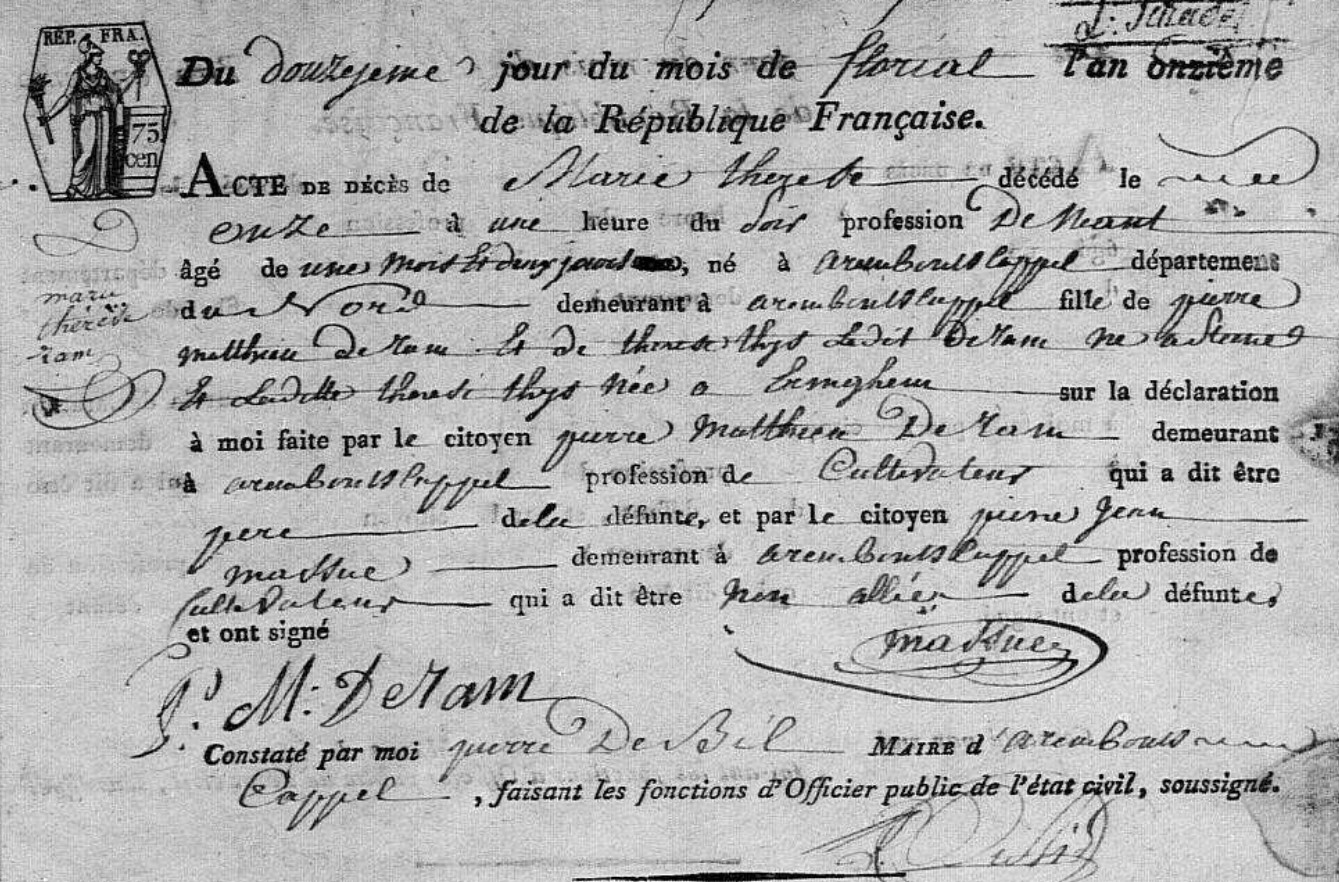 RÉP. FRA.
75
cen
Du douzejeme jour du mois de florial l'an onzième
de la République Française.
ACTE DE DÉCÈS de Marie therese décédé le
onze à une heure du soir profession De Neant
âgé de une mois Et deux jours, né à arembouts Cappel département
marie
therese
ram
du Nord demeurant à arembouts Cappel fille de pierre
matthieu De ram Et de therese thys Ledit De ram ne a Steene
Et Laditte therese thys Née a Eringhem sur la déclaration
à moi faite par le citoyen pierre Matthieu De ram demeurant
à arembouts Cappel profession de Cultivateur qui a dit être
pere dela défunte, et par le citoyen pierre Jean
massue demeurant à arembouts Cappel profession de
Cultivateur qui a dit être Non allié dela défunte,
et ont signé
massue
P. M: De ram
Constaté par moi pierre De Bil MAIRE d'arembouts
Cappel, faisant les fonctions d'Officier public de l'état civil, soussigné.